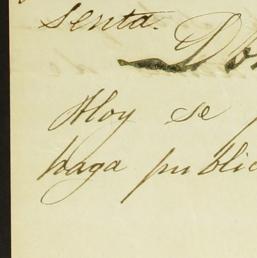 senta.
Do
Hoy se
haga public